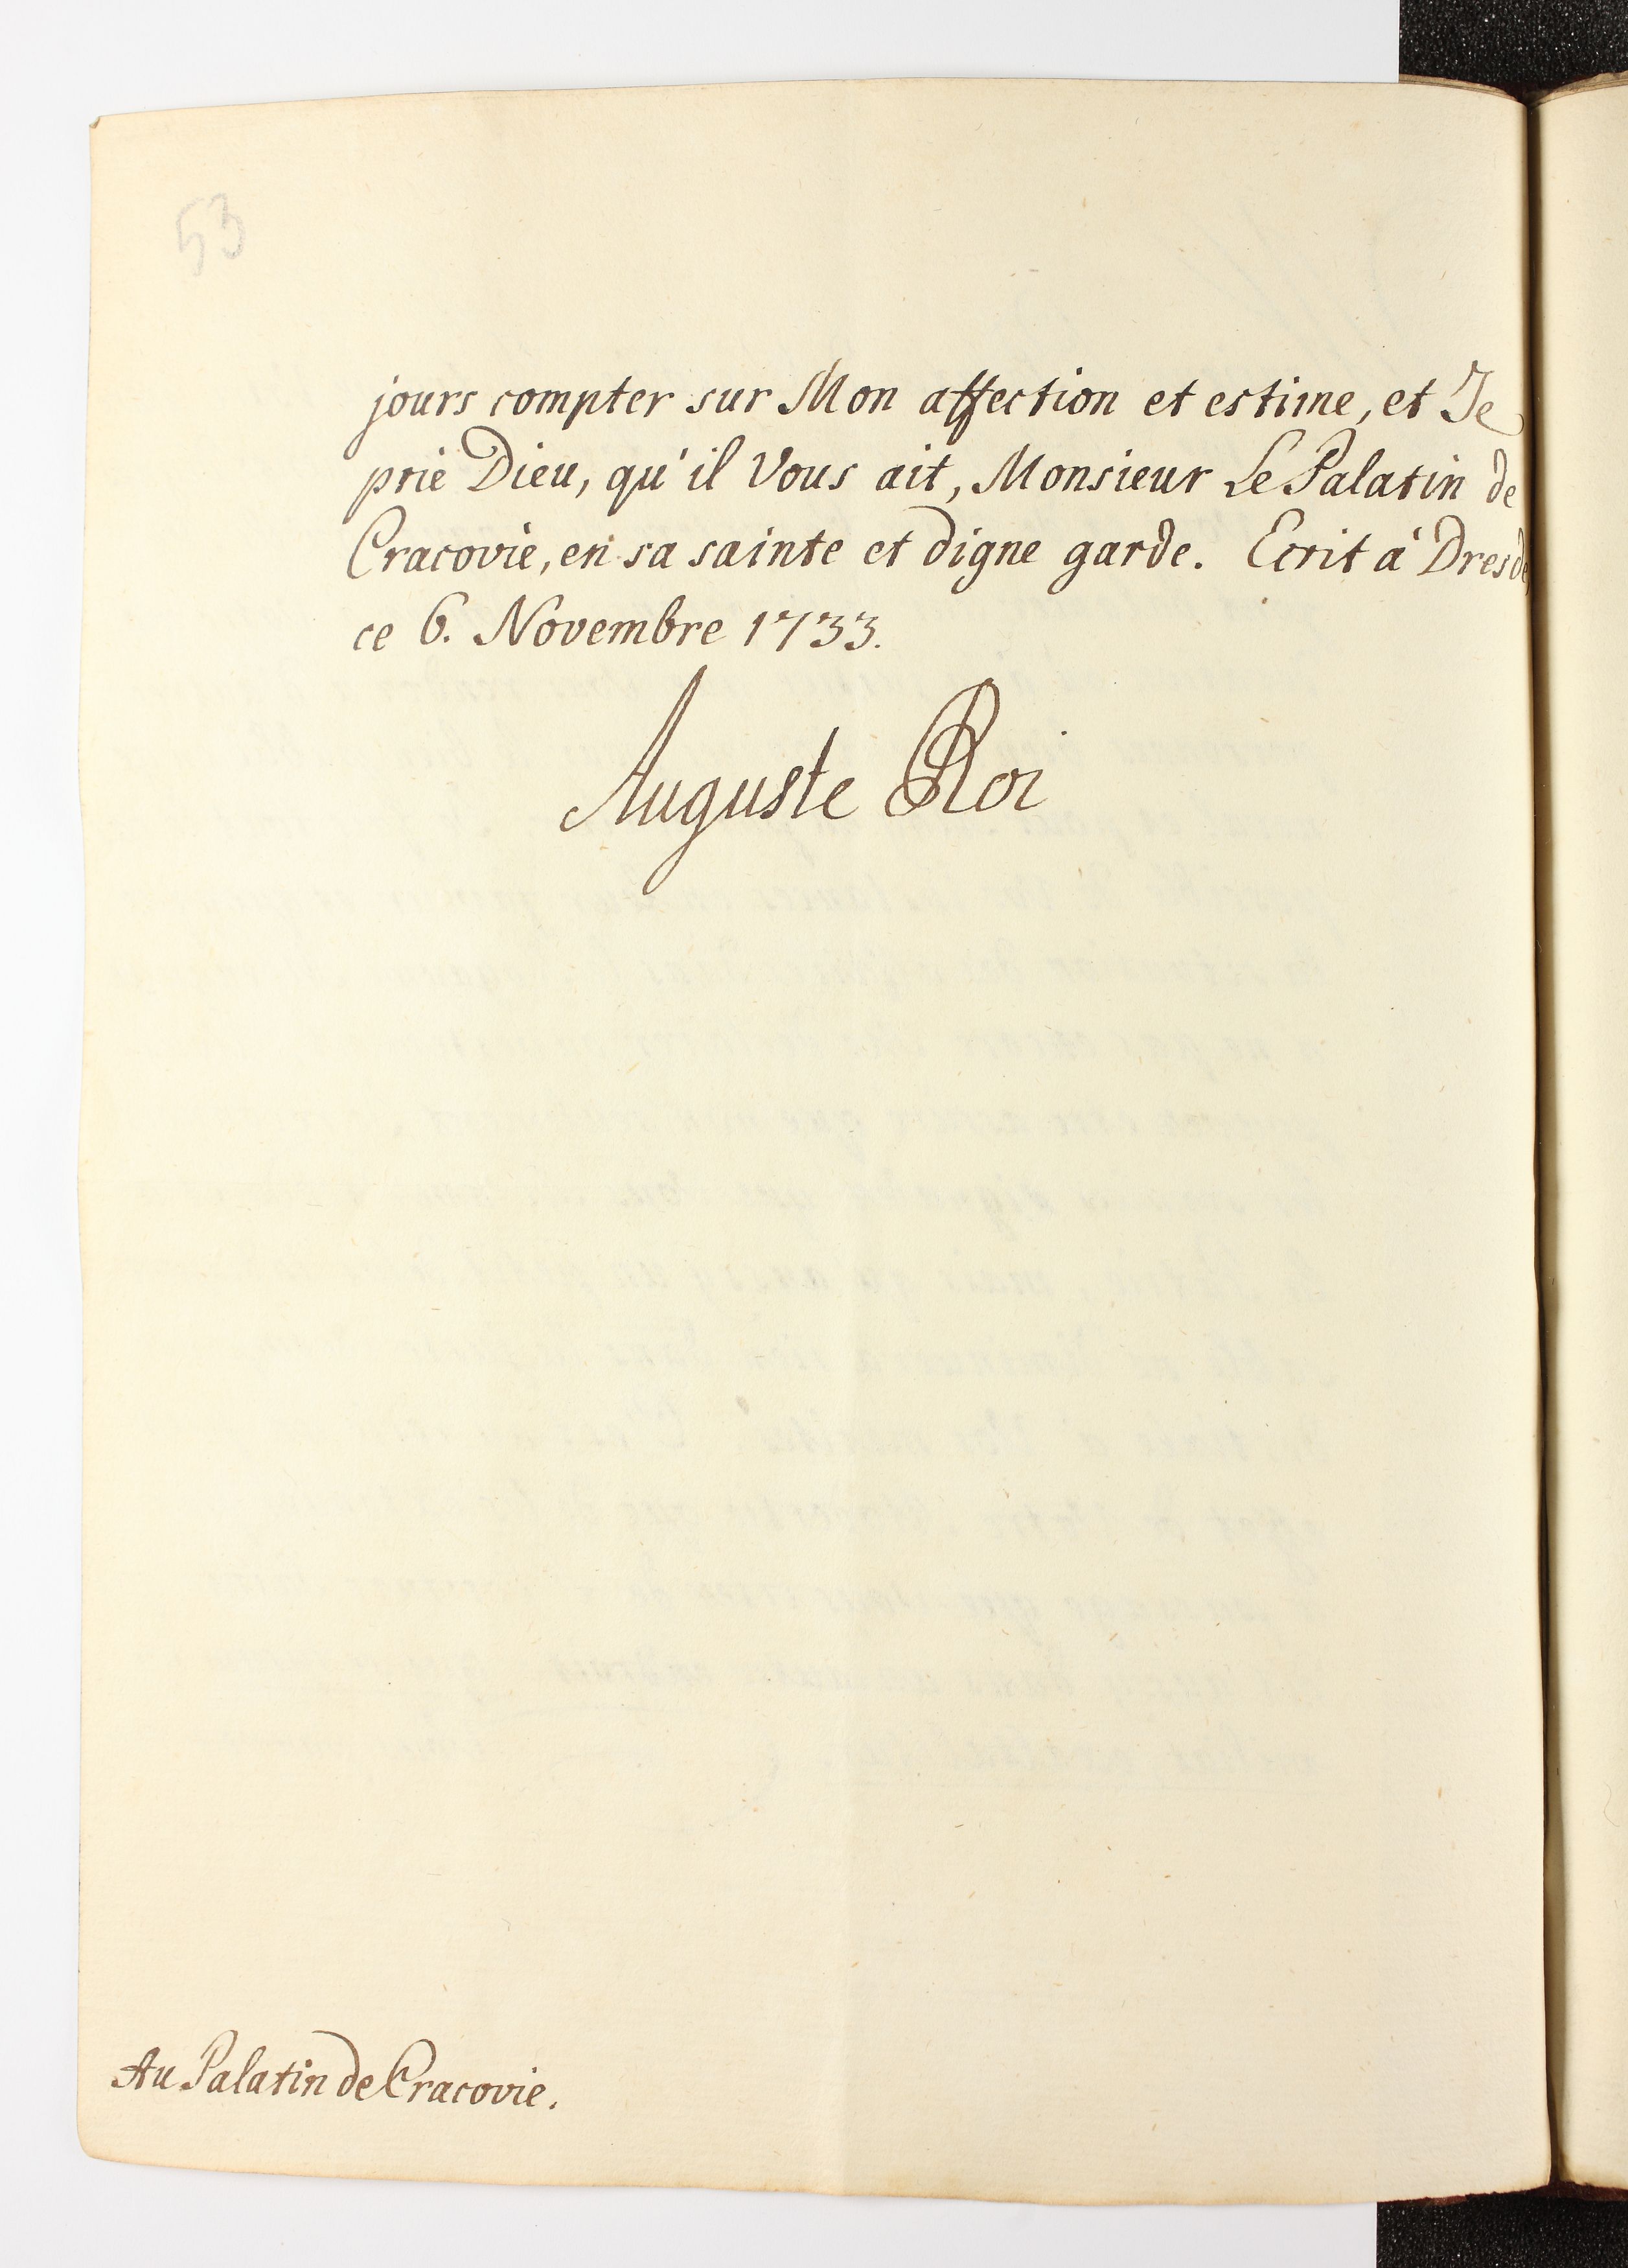 53
jours compter sur Mon affection et estime, et Je
prie Dieu, qu'il Vous ait, Monsieur Le Palatin de
Cracovie, en sa sainte et digne garde. Ecrit à Dresde
ce 6. Novembre 1733.
Auguste Roi
Au Palatin de Cracovie.